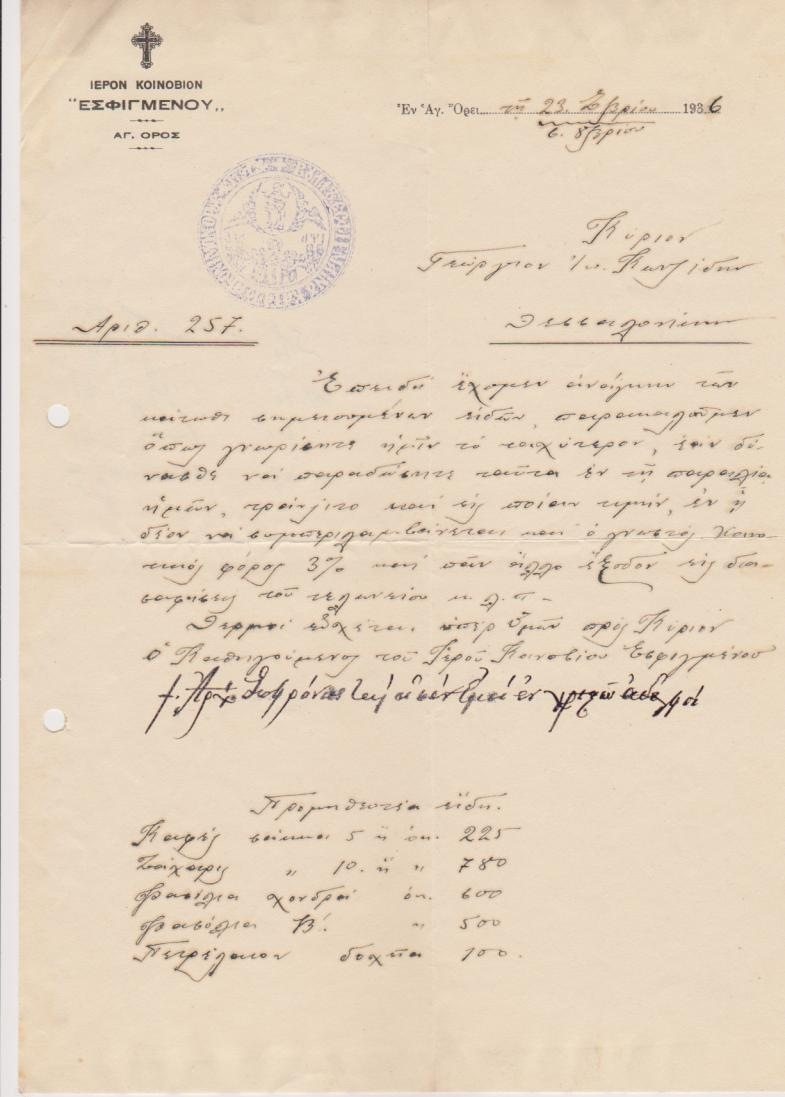 ΙΕΡΟΝ ΚΟΙΝΟΒΙΟΝ
"ΕΣΦΙΓΜΕΝΟΥ„
ΑΓ. ΟΡΟΣ
Ἐν Ἁγ. Ὄρει τῇ 23. 7βρίου 1936
6. 8βρίου
Κύριον
Γεώργιον Ἰω.
Θεσσαλονίκην
Ἀριθ. 257.
Ἐπειδὴ ἔχομεν ἀνάγκην τῶν
κάτωθι σημειουμένων εἰδῶν, παρακαλοῦμεν
ὅπως γνωρίσητε ἡμῖν τὸ ταχύτερον, ἐὰν δύ-
νασθε νὰ παραδώσητε ταῦτα ἐν τῇ παραλίᾳ
ἡμῶν, τράνζιτο καὶ εἰς ποίαν τιμήν, ἐν ᾗ
δέον νὰ συμπεριλαμβάνεται καὶ ὁ γνωστὸς Κοινο-
τικὸς φόρος 3% καὶ πᾶν ἄλλο ἔξοδον εἰς δια-
σαφήσεις τοῦ τελωνείου κ.λ.π-
Θερμὸς εὐχέτης ὑπὲρ ὑμῶν πρὸς Κύριον
Ὁ Καθηγούμενος τοῦ Ἱεροῦ Κοινοβίου Ἐσφιγμένου
ἐν Χριστῷ ἀδελφοί
Προμηθευτέα εἴδη.
Καφὲς σάκκοι 5 ἢ ὀκ. 225
Ζάχαρις „ 10. ἢ „ 780
Φασόλια χονδρὰ ὀκ. 600
Φασόλια Β΄. „ 500
Πετρέλαιον δοχεῖα 100.